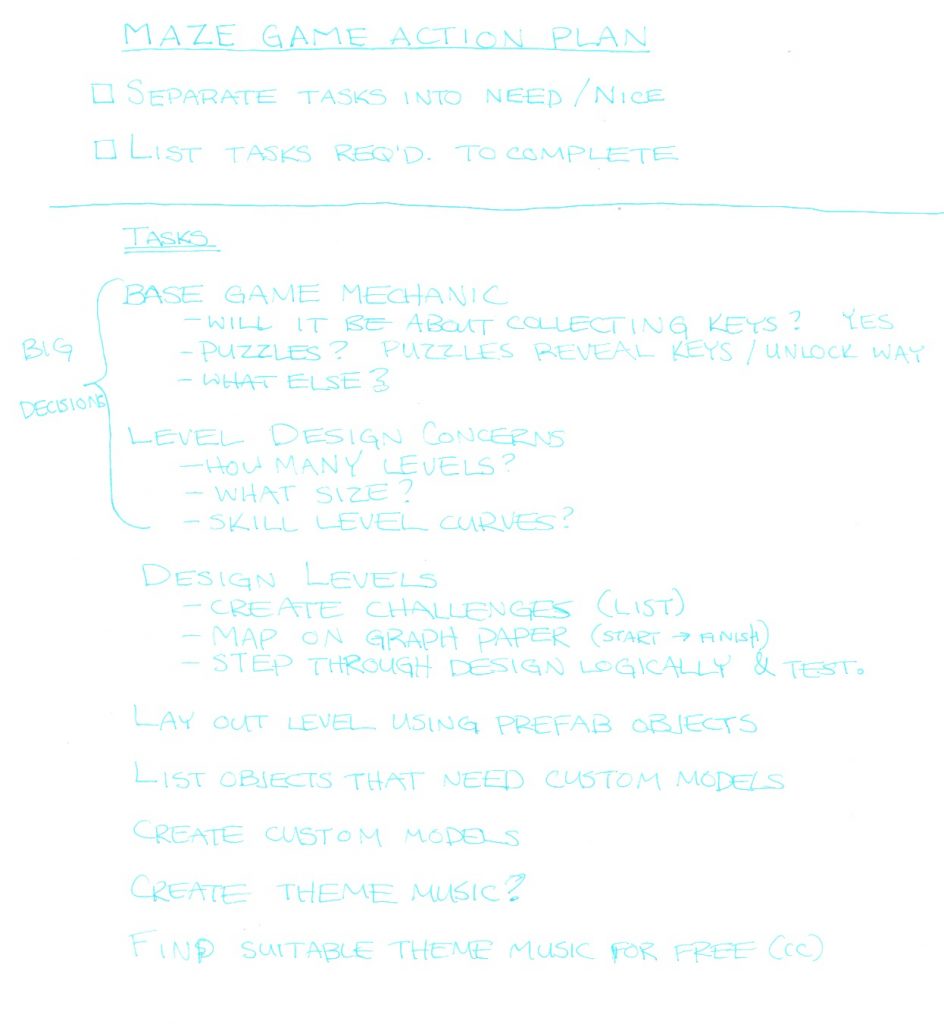 MAZE GAME ACTION PLAN
□ SEPARATE TASKS INTO NEED/NICE
□ LIST TASKS REQ'D. TO COMPLETE
TASKS
BIG DECISIONS
BASE GAME MECHANIC
- WILL IT BE ABOUT COLLECTING KEYS? YES
- PUZZLES? PUZZLES REVEAL KEYS/UNLOCK WAY
- WHAT ELSE?
LEVEL DESIGN CONCERNS
- HOW MANY LEVELS?
- WHAT SIZE?
- SKILL LEVEL CURVES?
DESIGN LEVELS
- CREATE CHALLENGES (LIST)
- MAP ON GRAPH PAPER (START → FINISH)
- STEP THROUGH DESIGN LOGICALLY & TEST.
LAY OUT LEVEL USING PREFAB OBJECTS
LIST OBJECTS THAT NEED CUSTOM MODELS
CREATE CUSTOM MODELS
CREATE THEME MUSIC?
FIND SUITABLE THEME MUSIC FOR FREE (CC)